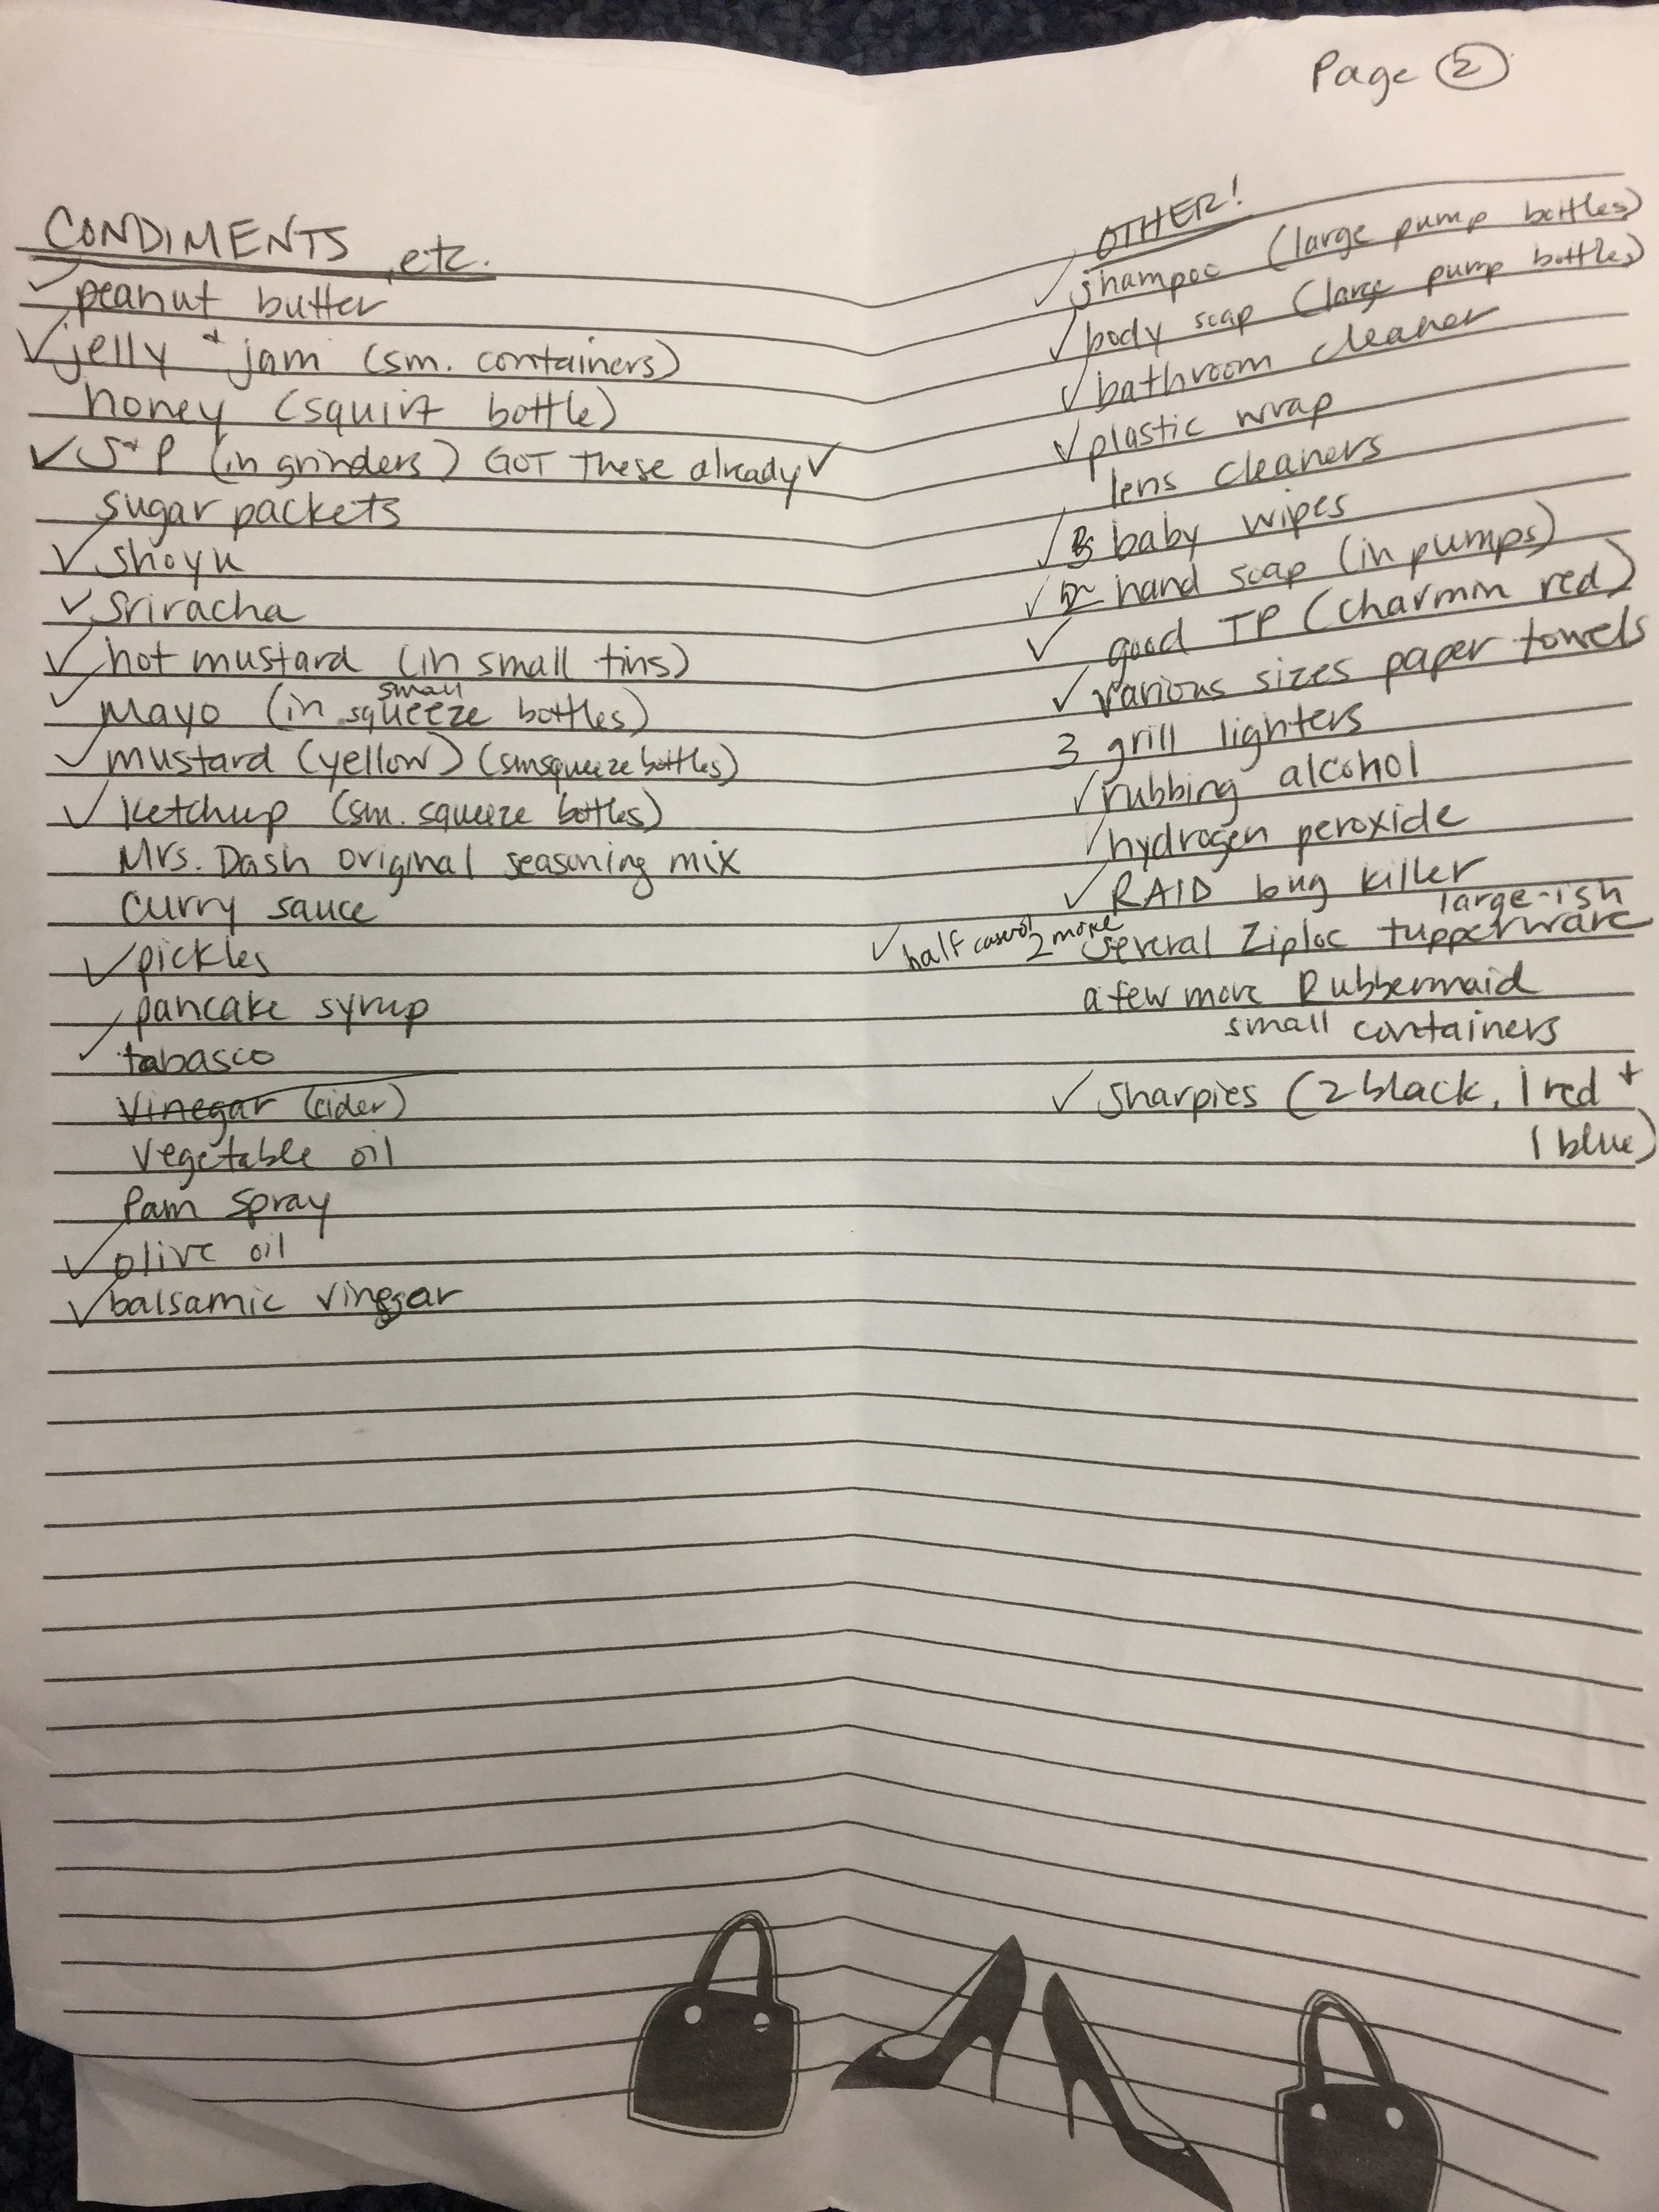 Page 2
CONDIMENTS, etc.
✓ peanut butter
✓ jelly + jam (sm. containers)
honey (squirt bottle)
✓ S+P (in grinders) GOT These already ✓
sugar packets
✓ shoyu
✓ Sriracha
✓ hot mustard (in small tins)
✓ Mayo (in small squeeze bottles)
✓ mustard (yellow) (sm squeeze bottles)
✓ Ketchup (sm. squeeze bottles)
Mrs. Dash original seasoning mix
curry sauce
✓ pickles
pancake syrup
✓ tabasco
Vinegar (cider)
Vegetable oil
Pam Spray
✓ olive oil
✓ balsamic vinegar
OTHER!
✓ shampoo (large pump bottles)
✓ body soap (large pump bottles)
✓ bathroom cleaner
✓ plastic wrap
lens cleaners
✓ baby wipes
✓ hand soap (in pumps)
✓ good TP (charmin red)
✓ various sizes paper towels
3 grill lighters
✓ rubbing alcohol
✓ hydrogen peroxide
✓ RAID bug killer
large-ish
✓ half 2 more several Ziploc tupperware
a few more Rubbermaid
small containers
✓ Sharpies (2 black, 1 red +
1 blue)